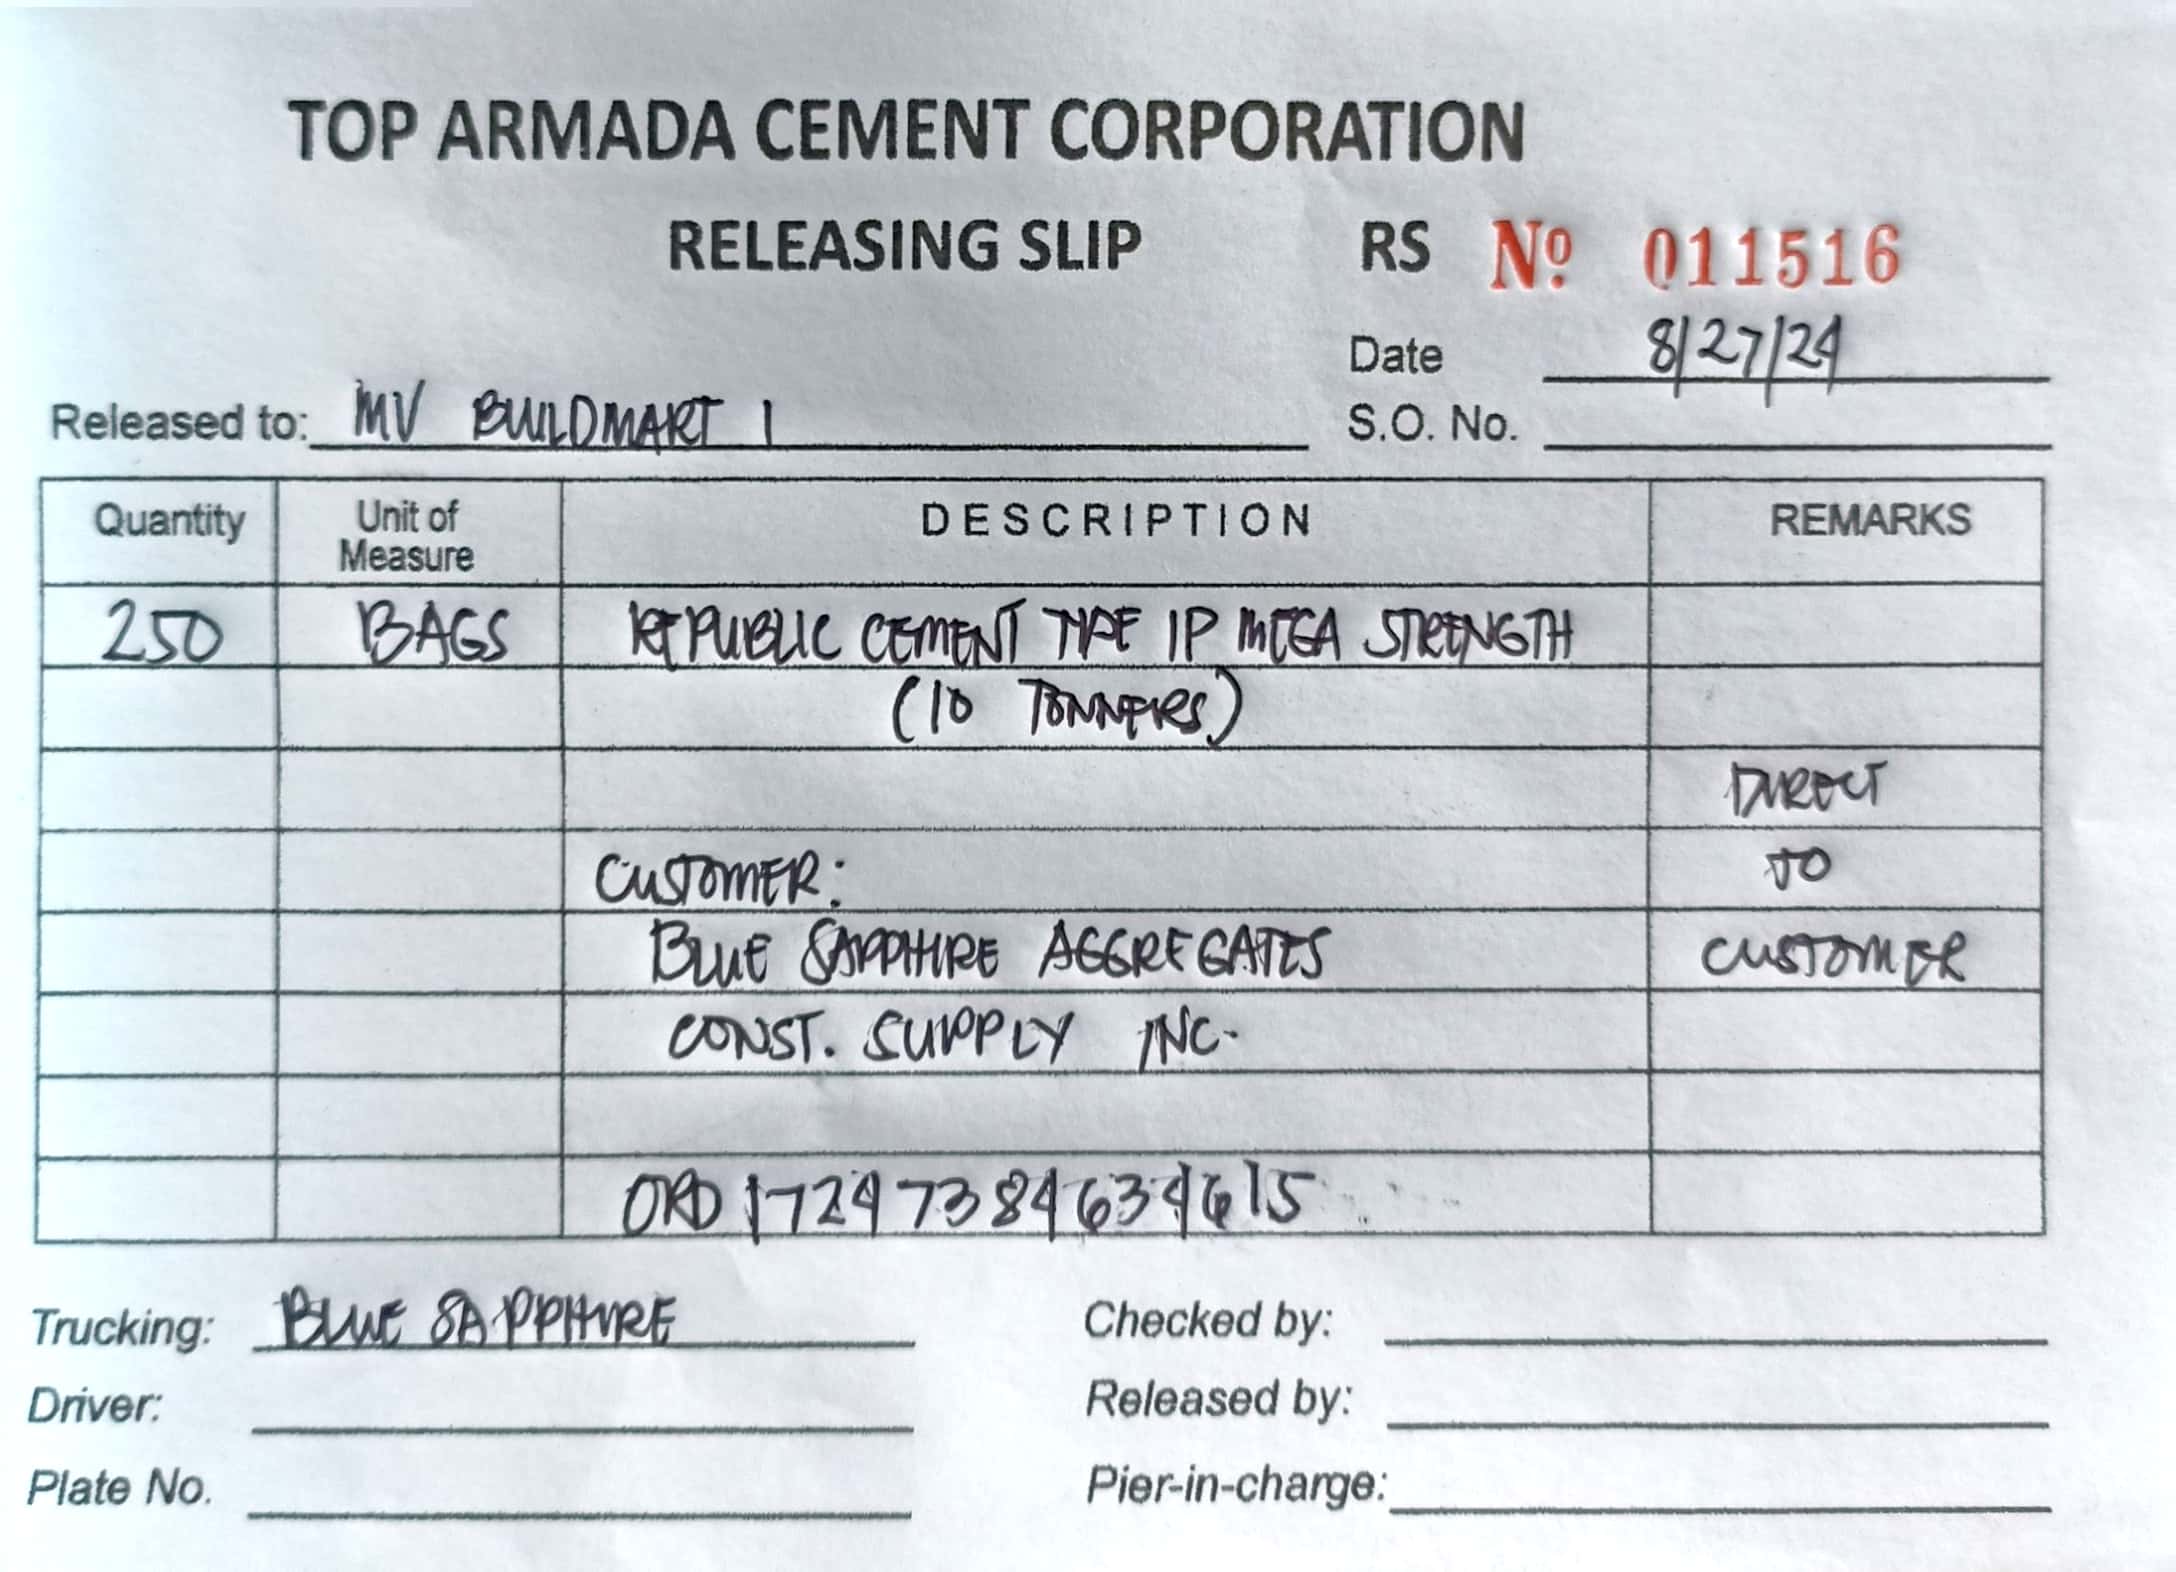 TOP ARMADA CEMENT CORPORATION
RELEASING SLIP RS Nº 011516
Date 8/27/24
Released to: MV BUILDMART 1 S.O. No.
Quantity Unit of Measure DESCRIPTION REMARKS
250 BAGS REPUBLIC CEMENT TYPE 1P MEGA STRENGTH
(10 TONNERS)
DIRECT
CUSTOMER: TO
BLUE SAPPHIRE AGGREGATES CUSTOMER
CONST. SUPPLY INC.
ORD 17247384634615
Trucking: BLUE SAPPHIRE Checked by:
Driver: Released by:
Plate No. Pier-in-charge: